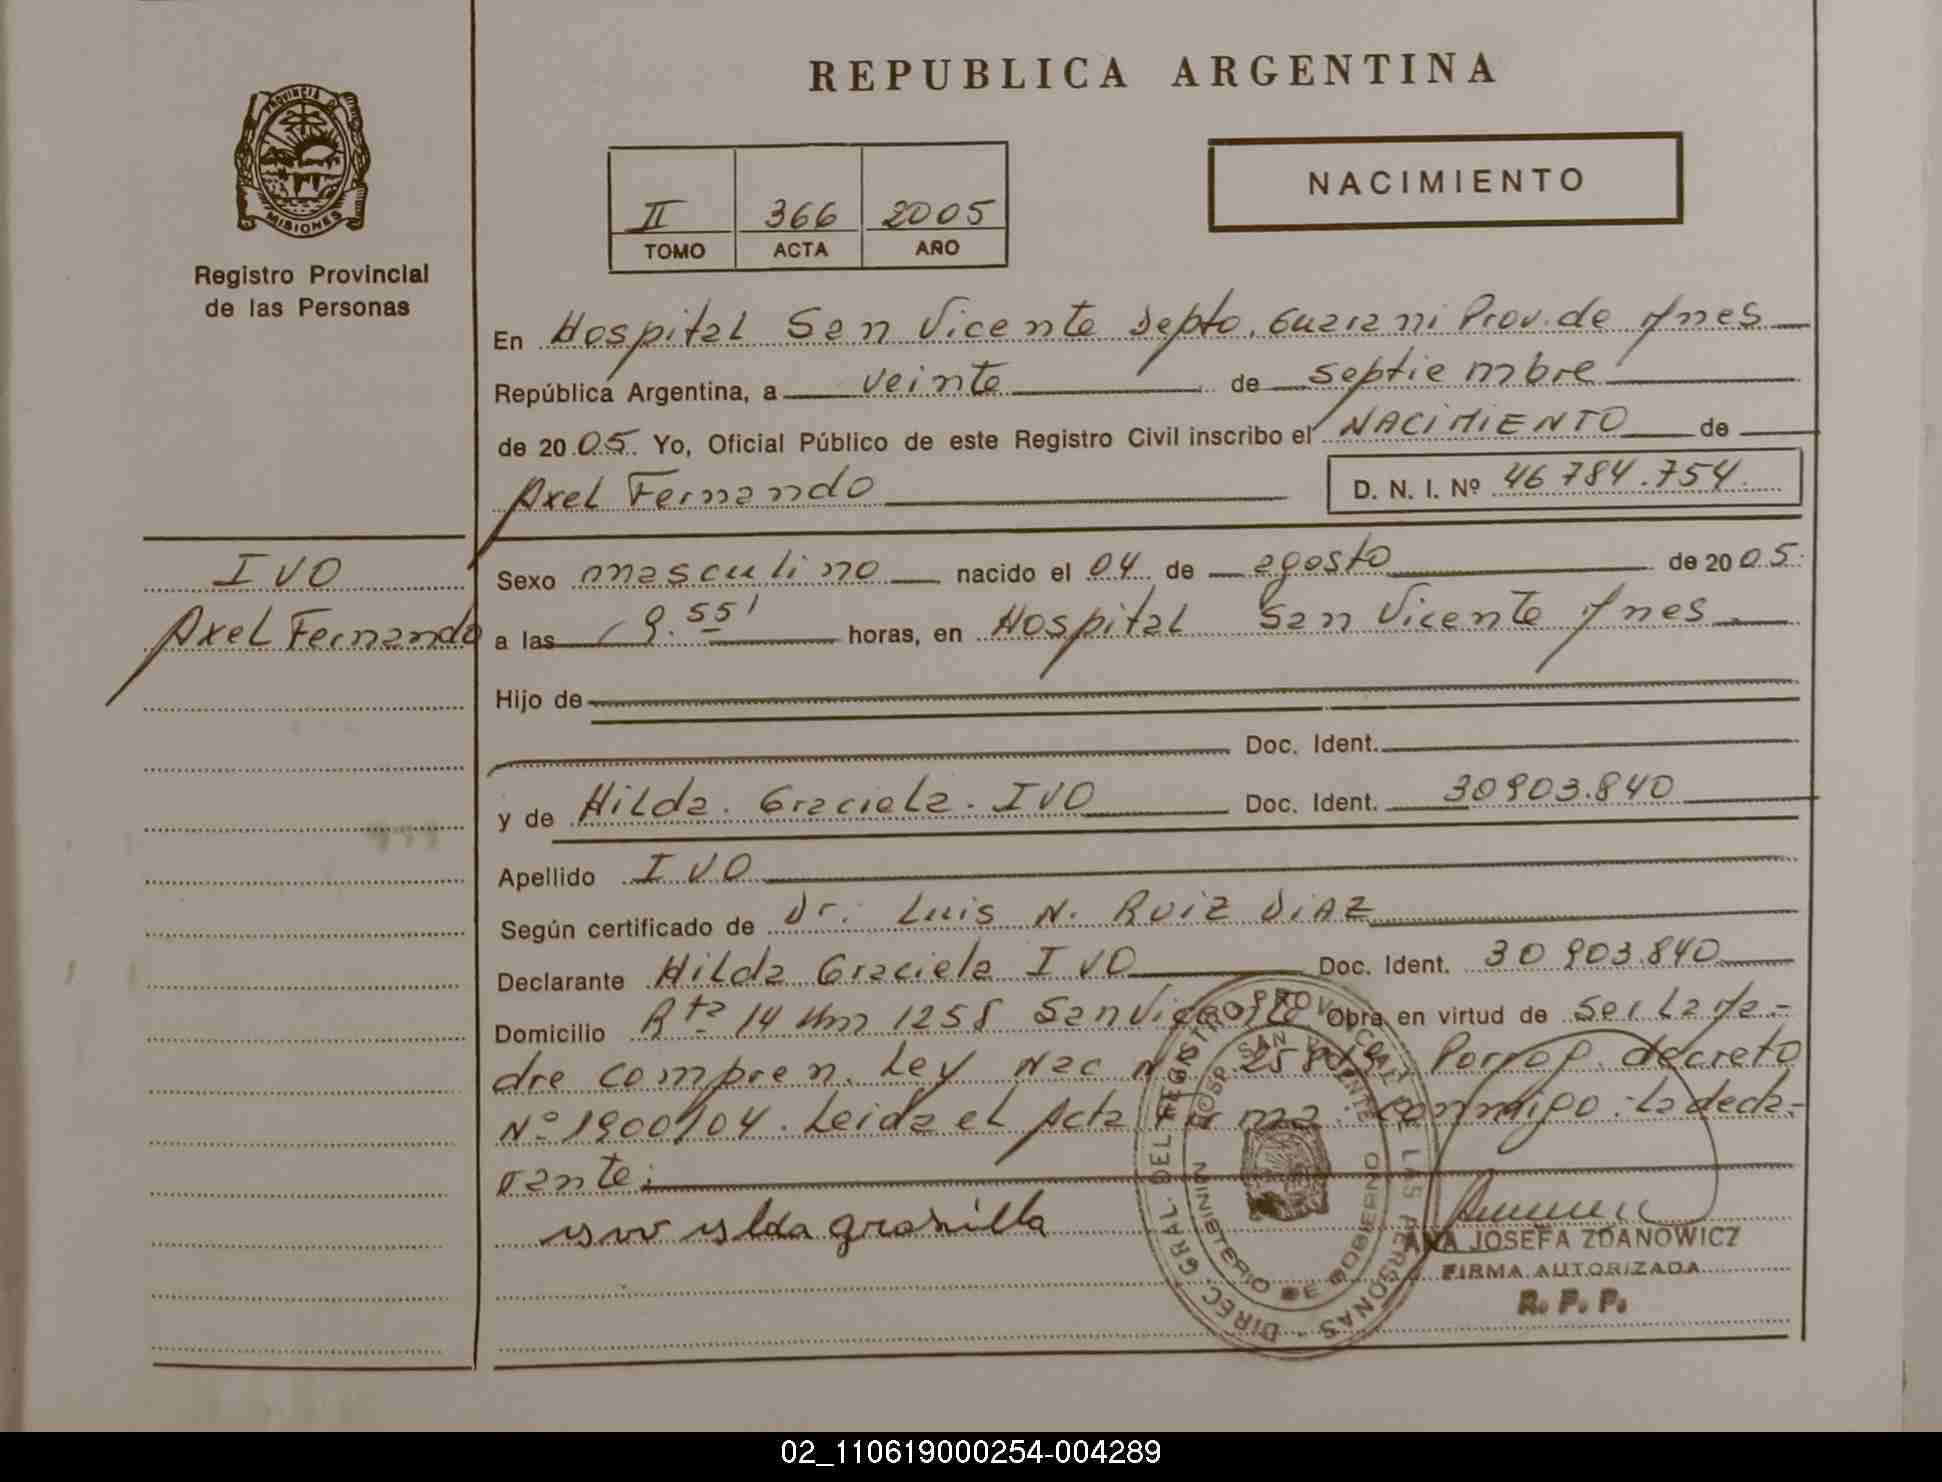 REPUBLICA ARGENTINA
PROVINCIA DE
MISIONES
Registro Provincial
de las Personas
II 366 2005
TOMO ACTA AÑO
NACIMIENTO
En Hospital San Vicente Depto. Guarani Prov. de Mnes
República Argentina, a veinte de septiembre
de 2005. Yo, Oficial Público de este Registro Civil inscribo el NACIMIENTO de
Axel Fernando D. N. I. Nº 46 784.754.
IVO
Axel Fernando
Sexo masculino nacido el 04 de agosto de 2005.
a las 9.55' horas, en Hospital San Vicente Mnes
Hijo de
Doc. Ident.
y de Hilda. Graciela. IVO Doc. Ident. 30903.840
Apellido IVO
Según certificado de Dr. Luis N. Ruiz Diaz
Declarante Hilda Graciela IVO Doc. Ident. 30 903.840
Domicilio Rta 14 Km 1258 San Vicente Obra en virtud de ser La Ma-
dre compren. Ley Nac Nº decreto
Nº 1900/04. Leida el Acta firma. conmigo. La decla-
rante:
ivo ylda grasiella
DIREC. GRAL. DEL REGISTRO PROVINCIAL DE LAS PERSONAS
HOSP. SAN VICENTE
MINISTERIO DE GOBIERNO
ANA JOSEFA ZDANOWICZ
FIRMA AUTORIZADA
R. P. P.
02_110619000254-004289